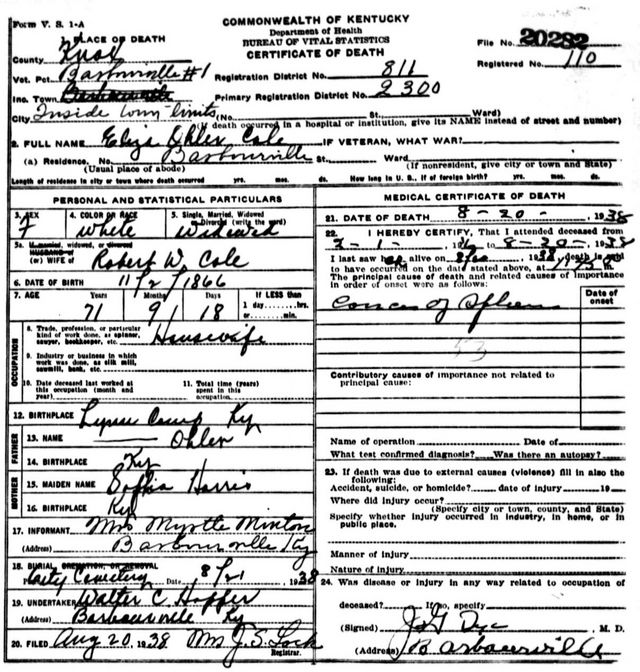 Form V. S. 1-A
COMMONWEALTH OF KENTUCKY
Department of Health
BUREAU OF VITAL STATISTICS
CERTIFICATE OF DEATH
File No. 20282
Registered No. 110
1. PLACE OF DEATH
County Knox
Vot. Pct. Barbourville #1
Inc. Town Barbourville
City Inside town limits
Registration District No. 811
Primary Registration District No. 2300
(No. St. Ward)
(If death occurred in a hospital or institution, give its NAME instead of street and number)
2. FULL NAME Eliza Ohler Cole IF VETERAN, WHAT WAR?
(a) Residence. No. Barbourville St. Ward
(Usual place of abode) (If nonresident, give city or town and State)
Length of residence in city or town where death occurred yrs. mos. ds. How long in U. S., if of foreign birth? yrs. mos. ds.
PERSONAL AND STATISTICAL PARTICULARS
3. SEX 4. COLOR OR RACE 5. Single, Married, Widowed or Divorced (write the word)
F White Widowed
5a. If married, widowed, or divorced
HUSBAND of
(or) WIFE of Robert W. Cole
6. DATE OF BIRTH 11/2/1866
7. AGE Years Months Days If LESS than
71 9 18 1 day hrs. or min.
OCCUPATION
8. Trade, profession, or particular kind of work done, as spinner, sawyer, bookkeeper, etc. Housewife
9. Industry or business in which work was done, as silk mill, sawmill, bank, etc.
10. Date deceased last worked at this occupation (month and year)
11. Total time (years) spent in this occupation.
12. BIRTHPLACE Lynn Camp Ky
FATHER
13. NAME Ohler
14. BIRTHPLACE Ky
MOTHER
15. MAIDEN NAME Sophia Harris
16. BIRTHPLACE Ky
17. INFORMANT Mrs Myrtle Minton
(Address) Barbourville Ky
18. BURIAL, CREMATION, OR REMOVAL
Cemetery Date 8/21 1938
19. UNDERTAKER Walter C Hopper
(Address) Barbourville Ky
20. FILED Aug 20 1938 Mrs J. S. Lock
Registrar.
MEDICAL CERTIFICATE OF DEATH
21. DATE OF DEATH 8-20- 1938
22. I HEREBY CERTIFY, That I attended deceased from
to 8-20- 1938
I last saw her alive on 1938, death is said
to have occurred on the date stated above, at
The principal cause of death and related causes of importance in order of onset were as follows:
Date of onset
Cancer of Spleen
53
Contributory causes of importance not related to principal cause:
Name of operation Date of
What test confirmed diagnosis? Was there an autopsy?
23. If death was due to external causes (violence) fill in also the following:
Accident, suicide, or homicide? date of injury 19
Where did injury occur?
(Specify city or town, county, and State)
Specify whether injury occurred in industry, in home, or in public place.
Manner of injury
Nature of injury
24. Was disease or injury in any way related to occupation of
deceased? If so, specify
(Signed) M. D.
(Address) Barbourville